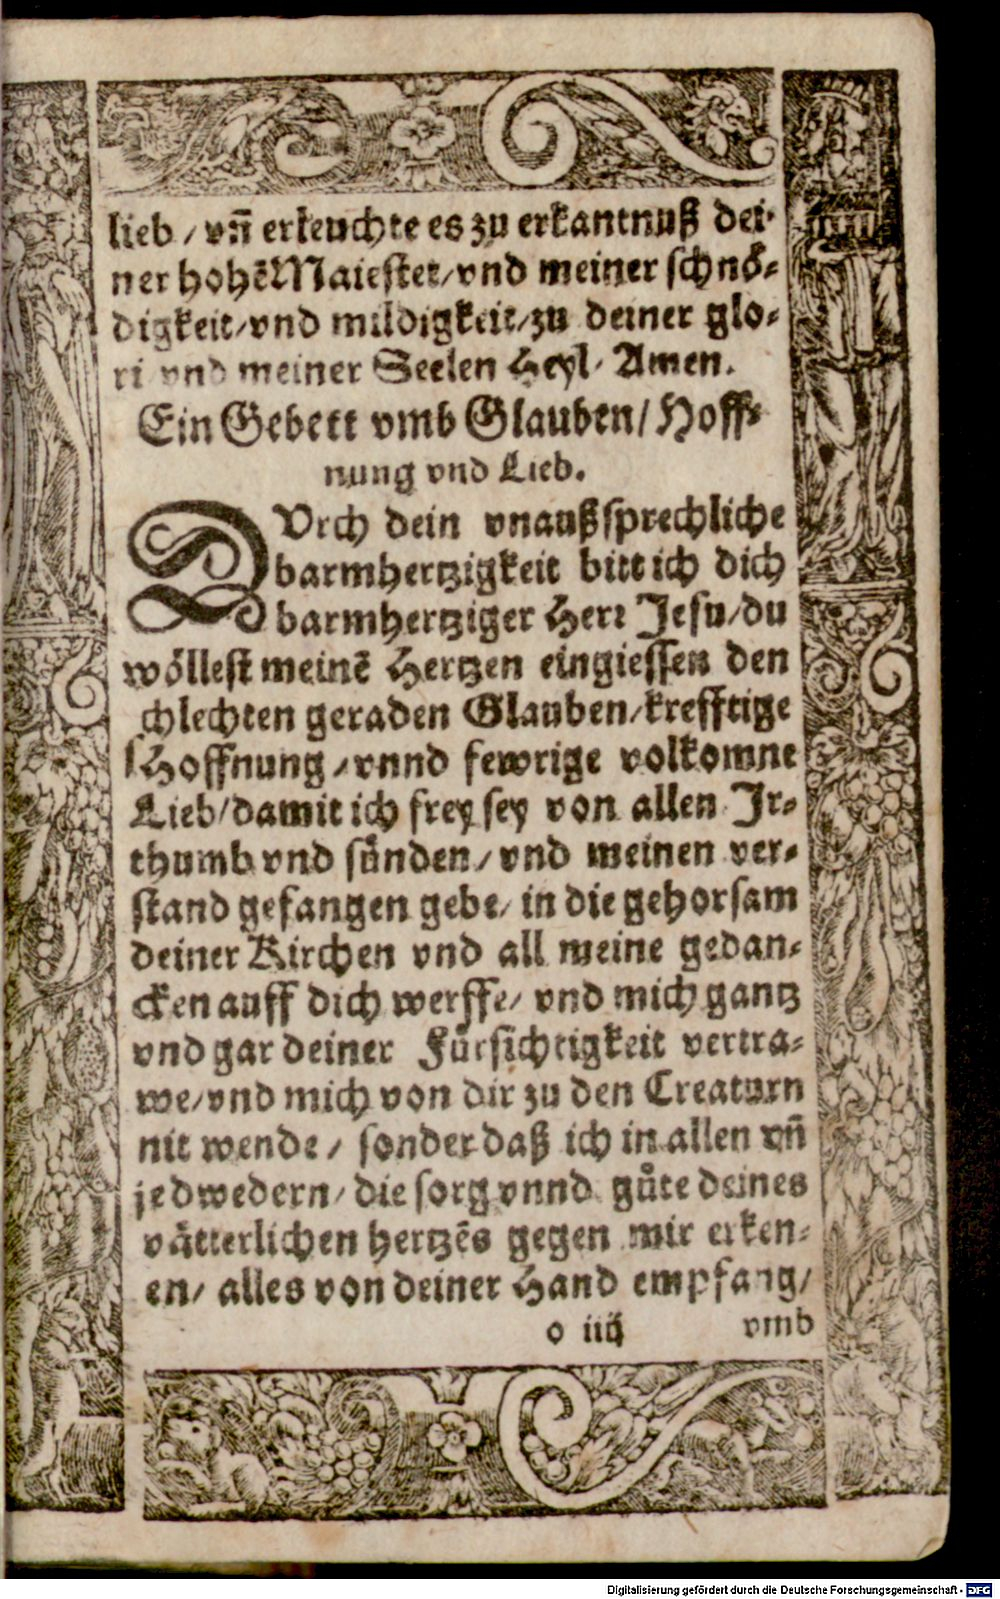 lieb / vñ erleuchte es zu erkantnuß dei-
ner hohẽ Maiestet / vnd meiner schnö-
digkeit / vnd mildigkeit / zu deiner glo-
ri vnd meiner Seelen Heyl / Amen.
Ein Gebett vmb Glauben / Hoff-
nung vnd Lieb.
DVrch dein vnaußsprechliche
barmhertzigkeit bitt ich dich
barmhertziger Herr Jesu / du
wöllest meinẽ Hertzen eingiessen den
chlechten geraden Glauben / krefftige
sHoffnung / vnnd fewrige volkomne
Lieb / damit ich frey sey von allen Jr-
thumb vnd sünden / vnd meinen ver-
stand gefangen gebe / in die gehorsam
deiner Kirchen vnd all meine gedan-
cken auff dich werffe / vnd mich gantz
vnd gar deiner Fürsichtigkeit vertra-
we / vnd mich von dir zu den Creaturn
nit wende / sonder daß ich in allen vñ
jedwedern / die sorg vnnd gůte deines
vätterlichen hertzẽs gegen mir erken-
en / alles von deiner Hand empfang /
o iiij vmb
Digitalisierung gefördert durch die Deutsche Forschungsgemeinschaft - DFG